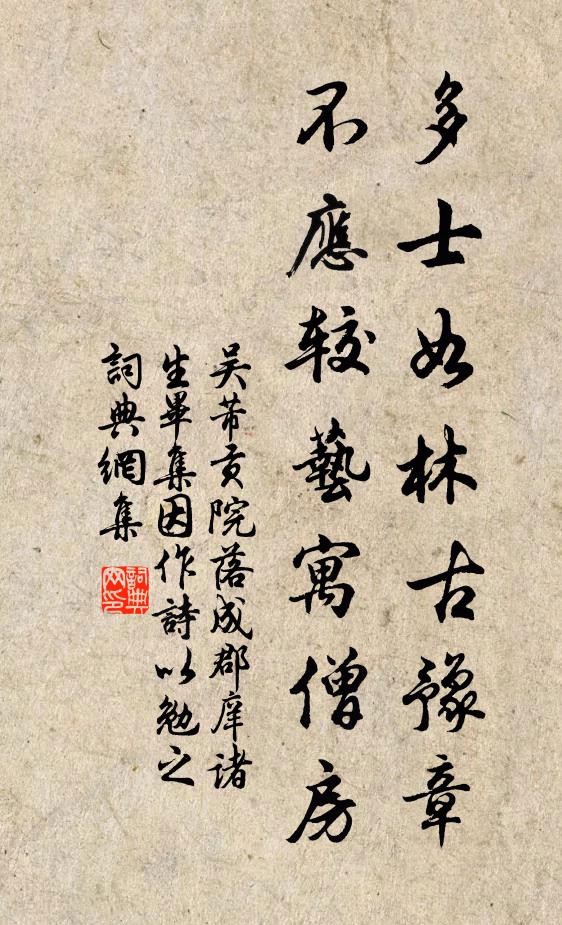 多士如林古豫章
不應较藝寓僧房
吴芾贡院落成郡庠诸
生畢集因作詩以勉之
詞典網集
詞典
网印